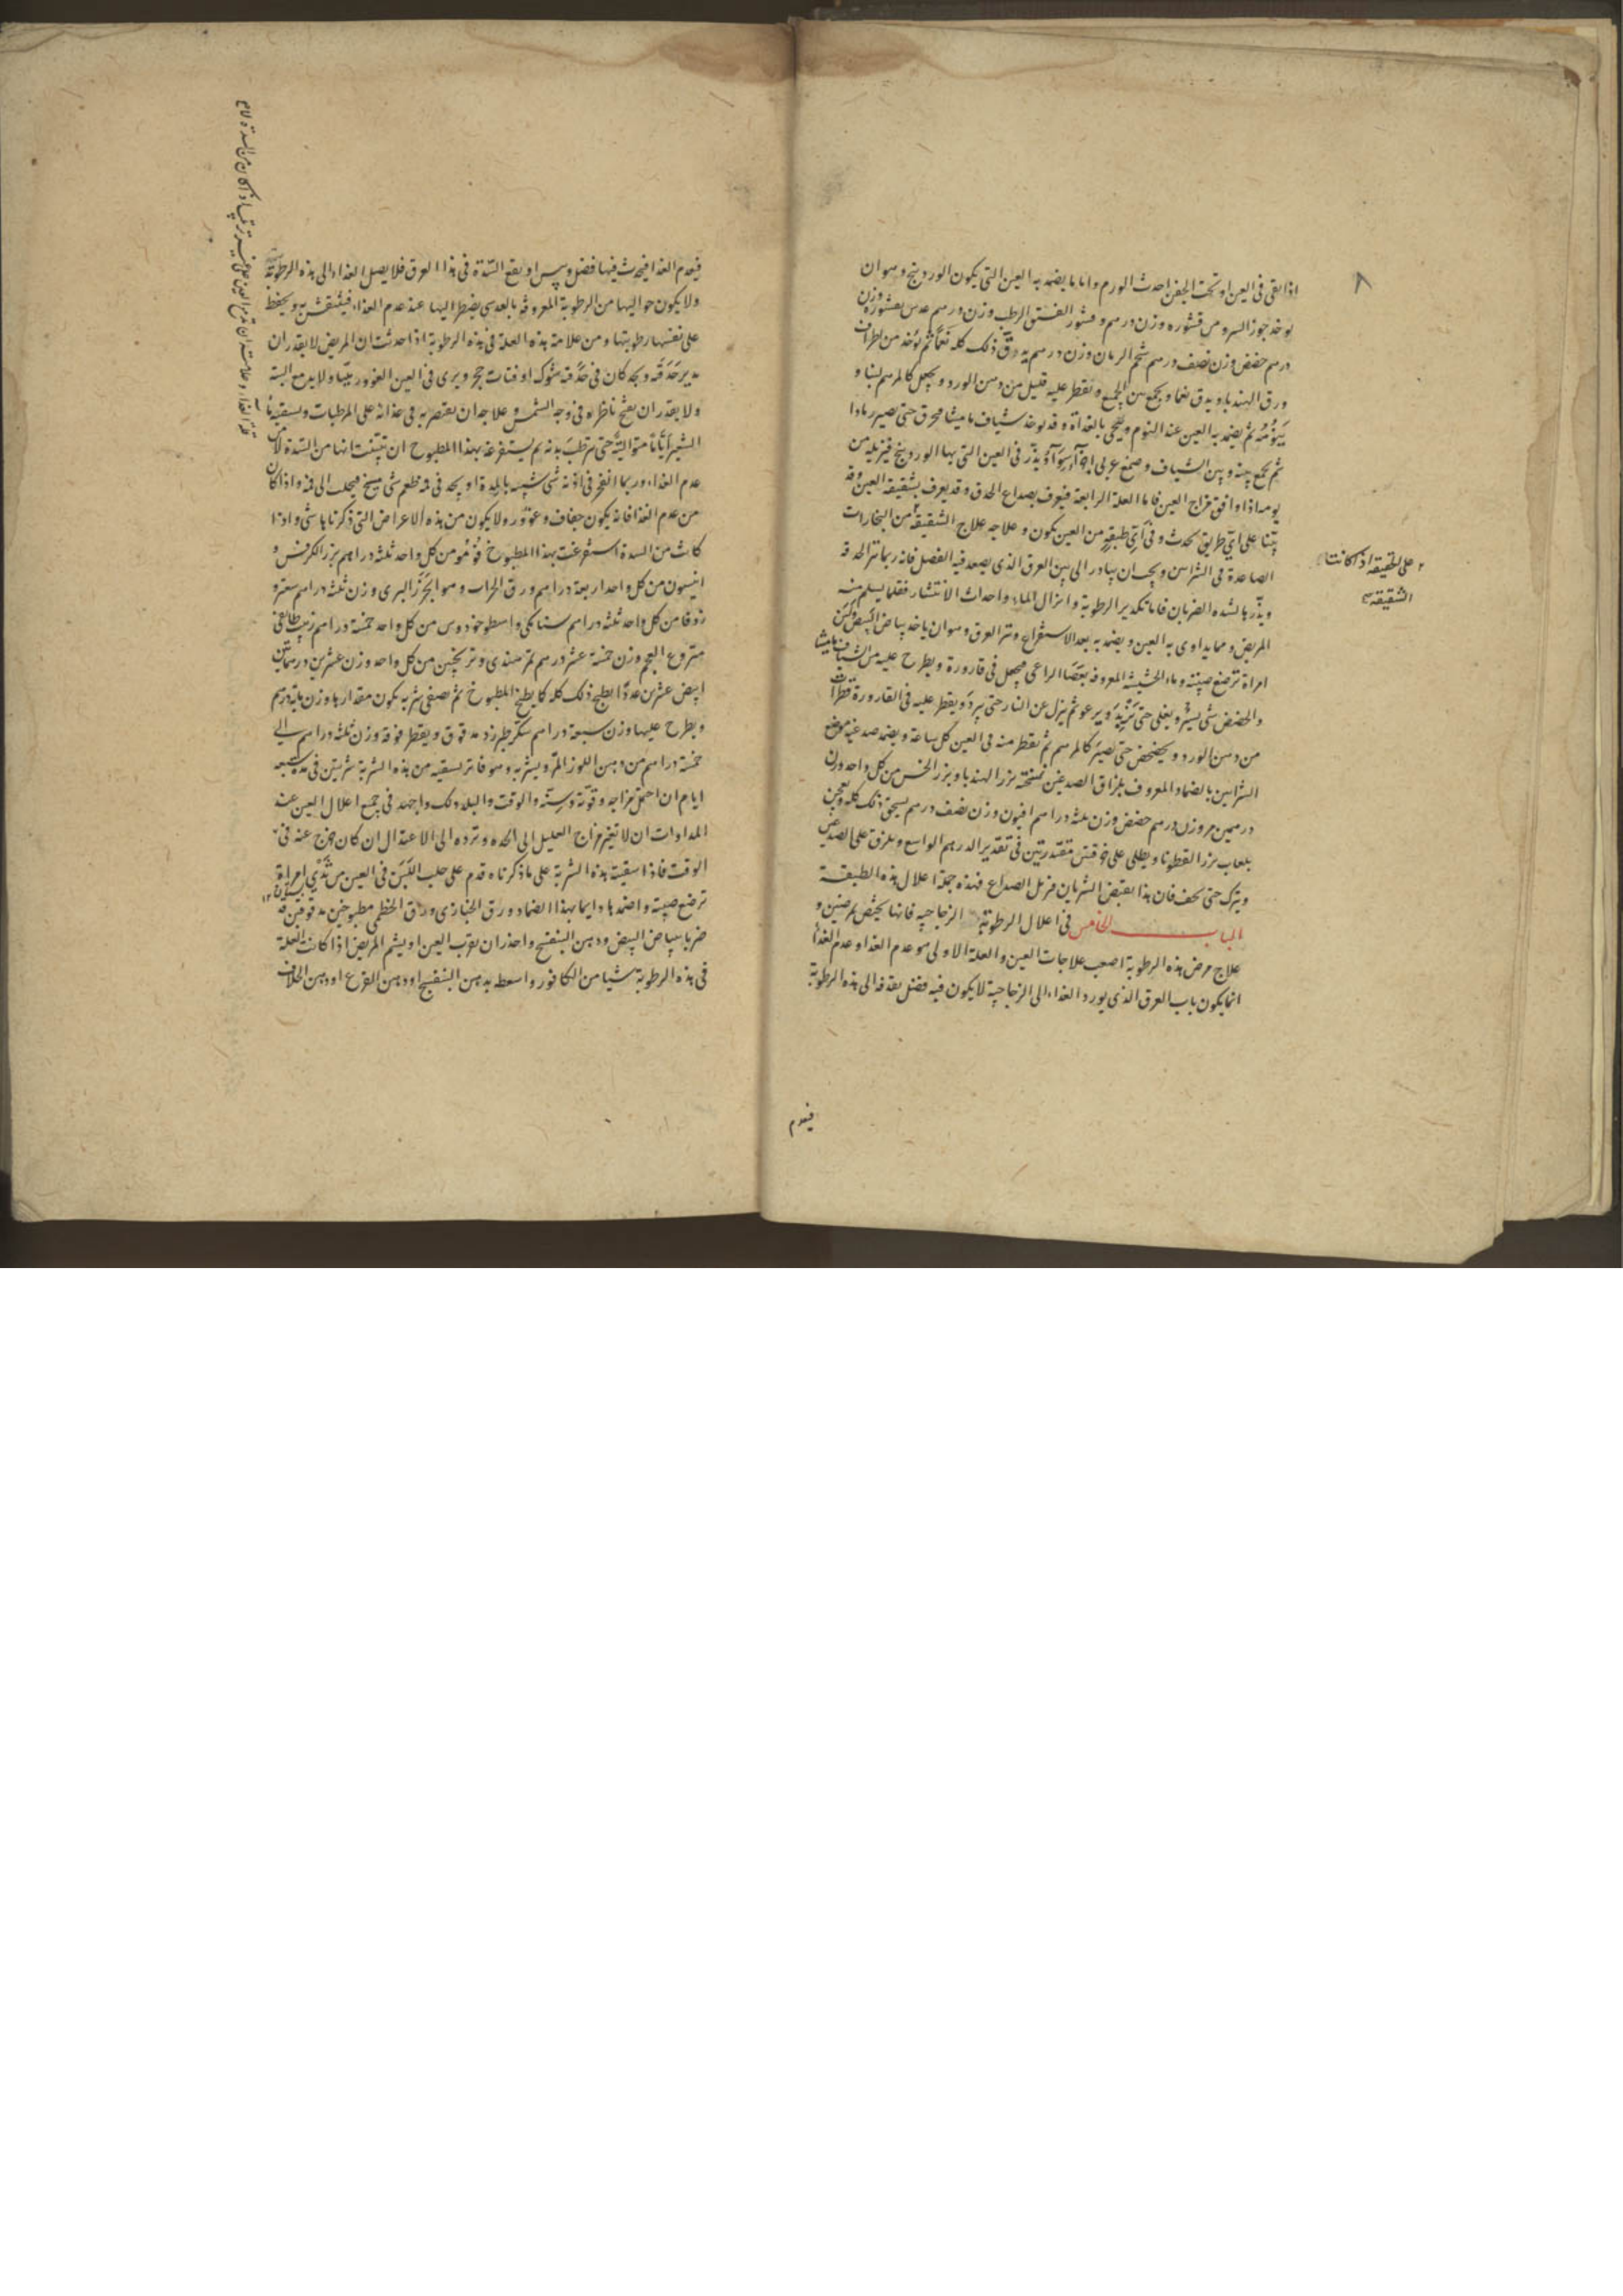 ٨
اذا بقى فى العين او تحت الجفن احدث الورم واما ما يضمد به العين التى يكون الوردينج وهو ان
يوخذ جوز السرو من قشوره وزن درهم وقشور الفستق الرطب وزن درهم عدس بقشوره وزن
درهم حضض وزن نصف درهم شحم الرمان وزن درهم يدق ذلك كله نعمًا ثم يؤخذ من اطراف
ورق الهندبا ويدق نعما ويجمع بين الجميع ويقطر عليه قليل من دهن الورد ويجعل كالمرهم لينا و
ثم يضمد به العين عند النوم وينحى بالغداة وقد يوخذ شياف ماميثا محرق حتى يصير رمادا
ثم يجمع بينه وبين الشياف وصمغ عربى اجزآء سوآء ويذر فى العين التى بها الوردينج فيزيله من
يومه اذا وافق مزاج العين فاما العلة الرابعة فيعرف بصداع الحدق وقد يعرف بشقيقة العين وقد
بينا على اى طريق يحدث وفى اى طبقة من العين يكون وعلاجه علاج الشقيقة من البخارات
على الحقيقة اذا كانت
الشقيقة
الصاعدة فى الشراس ويجب ان يبادر الى بين العرق الذى يصعد فيه الفضل فانه ربما نتر الحدقة
ويذرها لشدة الضربان فاما تكدير الرطوبة وانزال الماء واحداث الانتشار فقلما يسلم منه
المريض ومما يداوى به العين ويضمد به بعد الاستفراغ وبتر العرق وهو ان ياخذ بياض البيض ولبن
امراة ترضع صبيته وماء الحشيشة المعروفة بعصا الراعى فيجعل فى قارورة ويطرح عليه من الشياف ماميثا
والحضض شى يسير ويغلى حتى يزبد ويرعو ثم ينزل عن النار حتى يبرد ويقطر عليه فى القارورة قطرات
من دهن الورد ويخضخض حتى يصير كالمرهم ثم يقطر منه فى العين كل ساعة ويضمد صدغيه موضع
الشراسن بالضماد المعروف بلزاق الصدغين نسخته بزر الهندبا وبزر الخس من كل واحد وزن
درهمين مر وزن درهم حضض وزن ثلثه دراهم افيون وزن نصف درهم يسحق ذلك كله ويعجن
بلعاب بزر القطونا ويطلى على خرقتين مقتدرتين فى تقدير الدرهم الواسع ويلزق على الصدغين
ويترك حتى يجف فان هذا يقبض الشريان مزيل الصداع فهذه جملة اعلال هذه الطبقة
الباب الخامس فى اعلال الرطوبة الزجاجيه فانها يختص بمرضين و
علاج مرض هذه الرطوبة اصعب علاجات العين والعلة الاولى هو عدم الغذا وعدم الغذا
انما يكون باب العرق الذى يورد الغذاء الى الزجاجية لا يكون فيه فضل يقذفه الى هذه الرطوبة
فيعدم
فيعدم الغذا فيحدث فيها فضل ويبس او يقع السدة فى هذا العرق فلا يصل الغذاء الى هذه الرطوبة
ولا يكون حواليها من الرطوبة المعروفة بالعدسى يضطر اليها عند عدم الغذاء فينتقش به ويحفظ
على نفسها رطوبتها ومن علامة هذه العلة فى هذه الرطوبة اذا حدثت ان المريض لا يقدر ان
يدير حدقه ويجد كان فى حدقه شوك او فتات حجر ويرى فى العين الغوور بينا ولا يدمع البتة
ولا يقدر ان يفتح ناظراه فى وجه الشمس وعلاجه ان يقتصر به فى غذائه على المرطبات ويسقيه مآ
الشعير اياما متوالية حتى ترطب بدنه ثم يستفرغه بهذا المطبوخ ان تبينت انها من السدة لا من
عدم الغذاء وربما انفجر فى اذنه شى شبيه بالمدة او يجد فى فمه طعم شى مسيخ فيجلب الى فمه واذا كان
من عدم الغذا فانه يكون جفاف وغوور ولا يكون من هذه الاعراض التى ذكرنا باشى واذا
كانت من السدة استفرغت بهذا المطبوخ فُوْمُو من كل واحد ثلثه دراهم بزر الكرفس و
انيسون من كل واحد اربعة دراهم ورق الحزاب وهو الجزر البرى وزن ثلثه دراهم سعتر و
زوفا من كل واحد ثلثه دراهم سنا مكى واسطوخودوس من كل واحد خمسة دراهم زبيب طائفى
منزوع العجم وزن خمسة عشر درهم تمر هندى وترنجبين من كل واحد وزن عشرين درهما تين
ابيض عشرين عددًا يطبخ ذلك كله كما يطبخ المطبوخ ثم يصفى شربه يكون مقدارها وزن مايه درهم
ويطرح عليها وزن سبعة دراهم سكر طبرزد مدقوق ويقطر فوقه وزن ثلثه دراهم الى
خمسة دراهم من دهن اللوز المر ويشربه وهو فاتر يسقيه من هذه الشربة شربتين فى مدة سبعه
ايام ان احتمل مزاجه وقوته وسنه والوقت والبلد ذلك واجتهد فى جميع اعلال العين عند
المداوات ان لا تغير مزاج العليل الى الحده وترده الى الاعتدال ان كان خرج عنه فى
الوقت فاذا سقيته هذه الشربة على ما ذكرناه قدم على حلب اللبن فى العين من ثدى امراة
ترضع صبيته واضمدها دايما بهذا الضماد ورق الخبازى وورق الخطمى مطبوخين مدقوقين قد
ضربا ببياض البيض ودهن البنفسج واحذر ان يقرب العين او يشم المريض اذا كانت العلة
فى هذه الرطوبة شيا من الكافور واسعط بدهن البنفسج او دهن القرع او دهن الخلاف